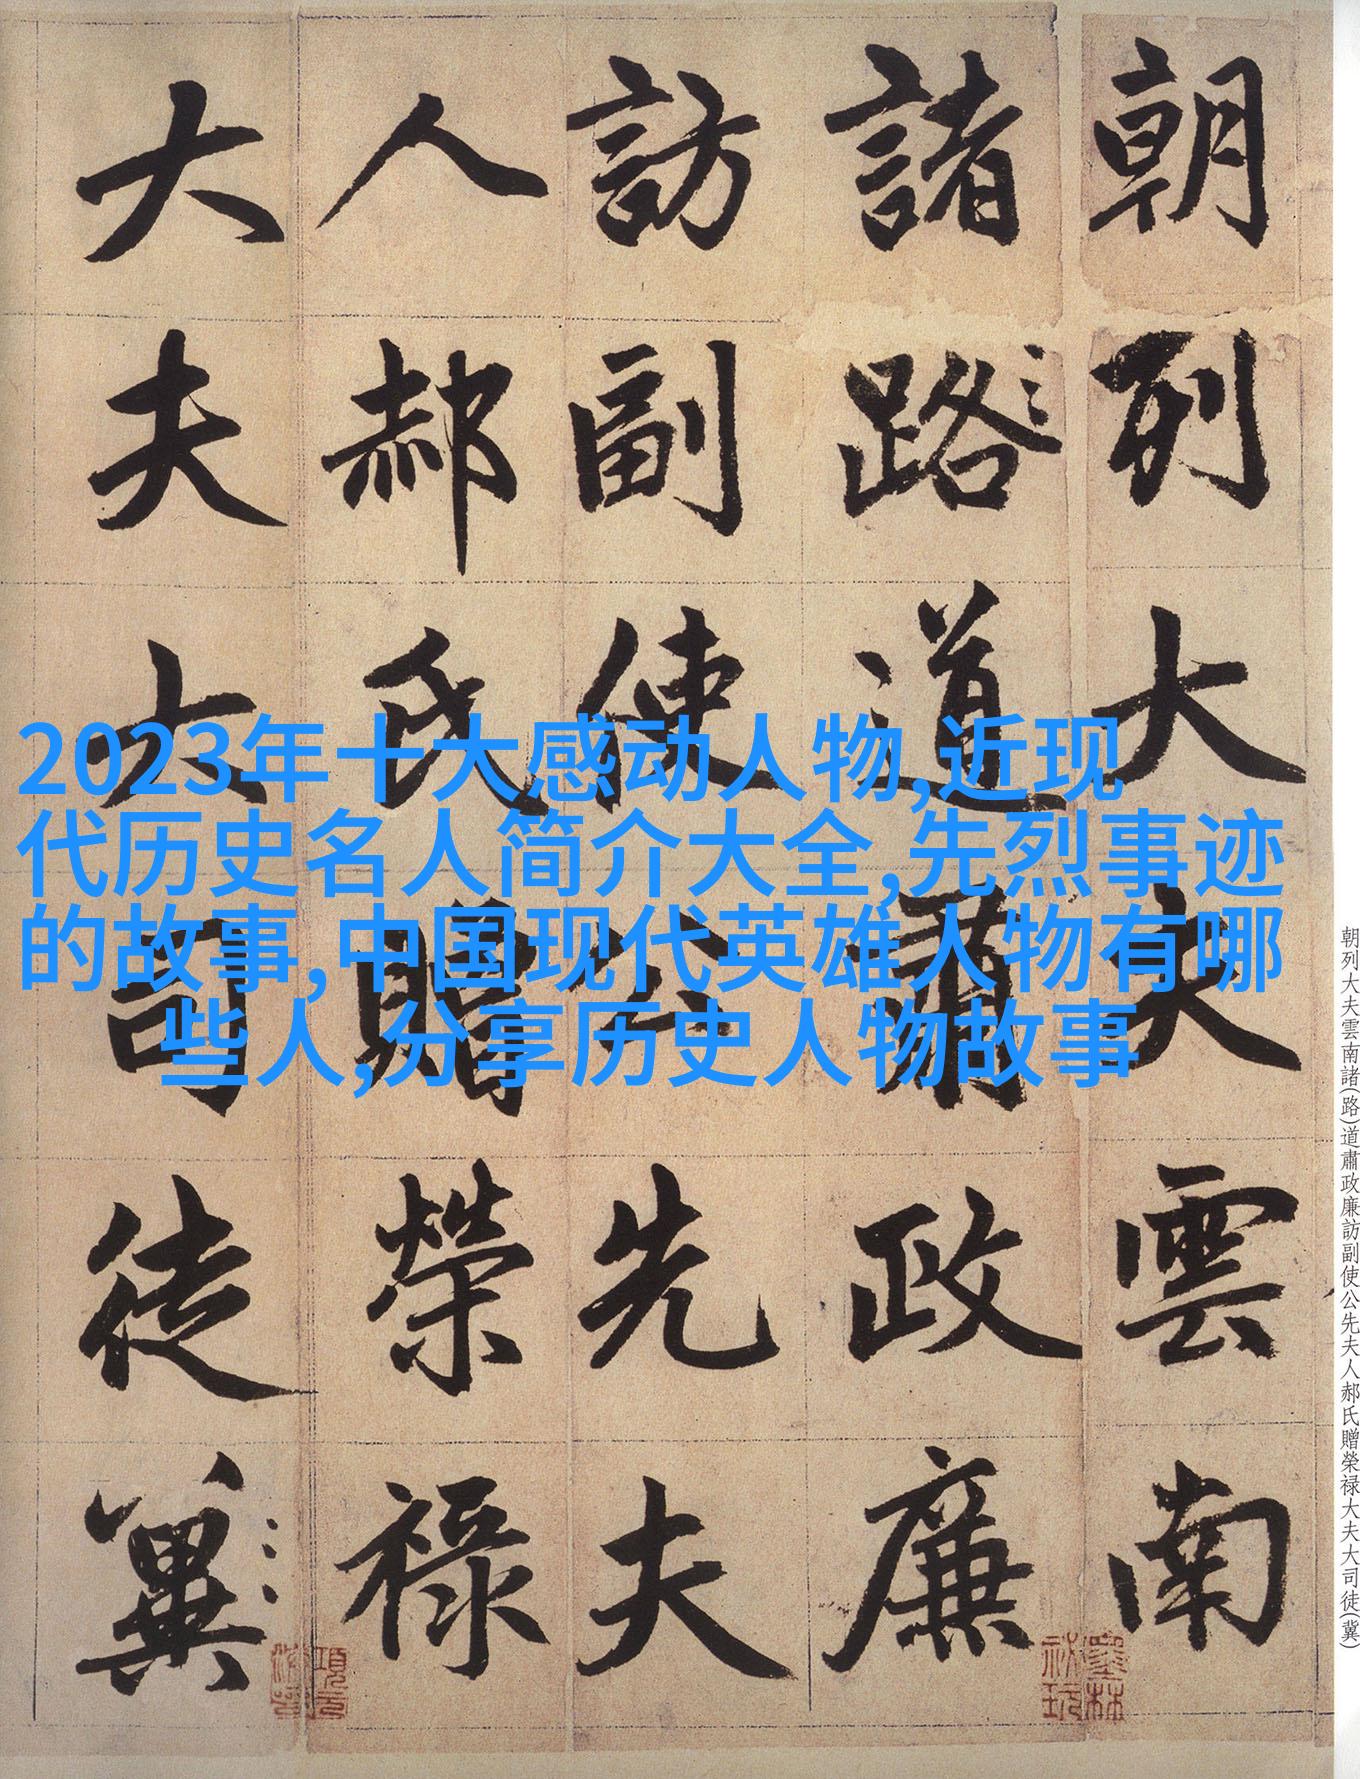 2023年十大感动人物,近现
代历史名人简介大全,先烈事迹
的故事,中国现代英雄人物有哪
些人,分享历史人物故事
朝列大夫雲南
諸路道肅政廉
訪副使公先夫
人郝氏贈榮禄
大夫大司徒冀
墨林祕玩
項元汴印
朝列大夫雲南諸(路)道肅政廉訪副使公先夫人郝氏贈榮禄大夫大司徒(冀)